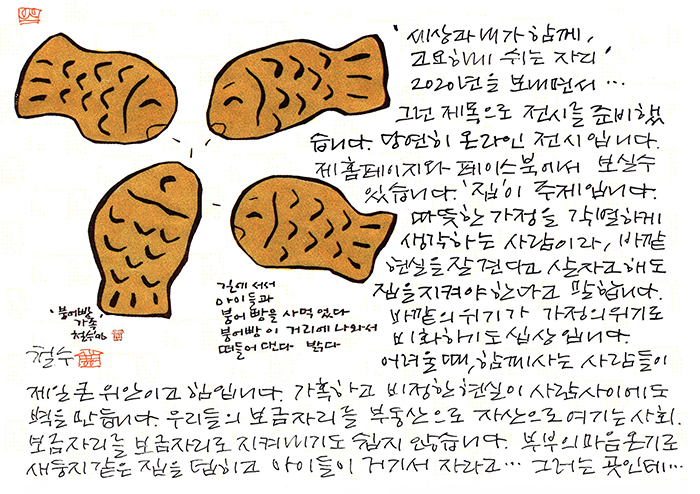 '세상과 내가 함께,
고요하게 쉬는 자리'
2020년을 보내면서...
그런 제목으로 전시를 준비했
습니다. 당연히 온라인 전시입니다.
제 홈페이지와 페이스북에서 보실수
있습니다. '집'이 주제입니다.
따뜻한 가정을 각별하게
생각하는 사람이라, 바깥
현실을 잘 견디고 살자고 해도
집을 지켜야 한다고 말합니다.
바깥의 위기가 가정의 위기로
비화하기도 십상입니다.
어려울 때, 함께 사는 사람들이
제일 큰 위안이고 힘입니다. 가혹하고 비정한 현실이 사람 사이에도
벽을 만듭니다. 우리들의 보금자리를 부동산으로 자산으로 여기는 사회.
보금자리를 보금자리로 지켜내기도 쉽지 않습니다. 부부의 마음 온기로
새둥지 같은 집을 덥히고 아이들이 거기서 자라고... 그러는 곳인데...
길에 서서
아이들과
붕어빵을 사먹었다
붕어빵이 거리에 나와서
떠들어댄다 밝다
'붕어빵'
가족
철수
철수